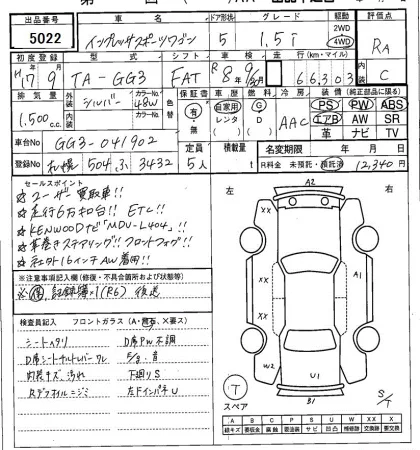 出品番号 車名 ドア形状 グレード 駆動 評価点
5022 インプレッサスポーツワゴン 5 1.5i 2WD 4WD RA
初度登録 型式 シフト 車検 走行 (km・マイル) 内装
H17年9月 TA-GG3 FAT R8年9月 66,303 C
排気量 外装 カラーNo. 色替 車歴 燃料 冷房 装備 (純正部品に限る)
1,500 c.c. シルバー 48W 有・無 自家用 レンタ G D AAC PS PW ABS
内装 カラーNo. エアB AW SR
革 ナビ TV
車台No. GG3-041902
登録No. 札幌 504 ふ 3432 定員 5人 積載量 t 名変期限 年 月 日
R料金 未預託・預託済 12,340円
セールスポイント 左 右
☆ユーザー買取車!!
☆走行6万キロ台!! ETC!!
☆KENWOODナビ「MDU-L404」!!
☆革巻きステアリング!!フロントフォグ!!
☆社外16インチAW着用!!
※注意事項記入欄(修復・不具合箇所および状態等)
記録簿×1(R6) 後送
検査員記入 フロントガラス (A・飛石・X要ス)
シートヘタリ D席PW不調
D席シートチルトレバーワレ
内装キズ・汚れ 下廻りS
Rデフオイルニジミ 左FインパネU
A2
XX
XX
A1
XX
XX
W2
U1
B1
T
スペア
S/T
A B C P S U W X XX
線キズ 要板金 腐蝕 要塗装 サビ 凹凸 補修跡 要交換 交換済